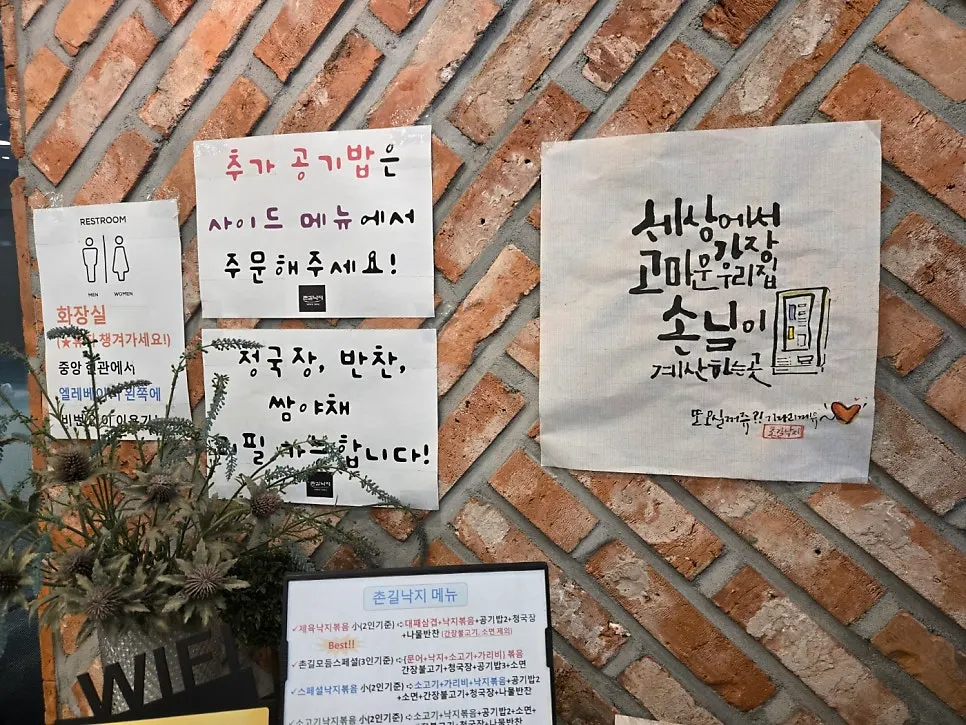 RESTROOM
MEN WOMEN
화장실
챙겨가세요!)
중앙 현관에서
엘레베이터 왼쪽에
추가 공기밥은
사이드 메뉴에서
주문해주세요!
촌길낙지
청국장, 반찬,
쌈야채
리필 가능합니다!
촌길낙지
세상에서
가장
고마운 우리집
손님이
계산하는곳
또오실꺼쥬?! 기다리께유~
촌길낙지
촌길낙지 메뉴
✓제육낙지볶음 小(2인기준) ➪대패삼겹+낙지볶음+공기밥2+청국장
+나물반찬 (간장불고기, 소면 제외)
Best!!
✓촌길모듬스페셜(3인기준) ➪(문어+낙지+소고기+가리비) 볶음
간장불고기+청국장+공기밥3+소면
✓스페셜낙지볶음 小(2인기준) ➪소고기+가리비+낙지볶음+공기밥2
+소면+간장불고기+청국장+나물반찬
✓소고기낙지볶음 小(2인기준) ➪소고기+낙지볶음+공기밥2+소면
+간장불고기+청국장+나물반찬
WIFI